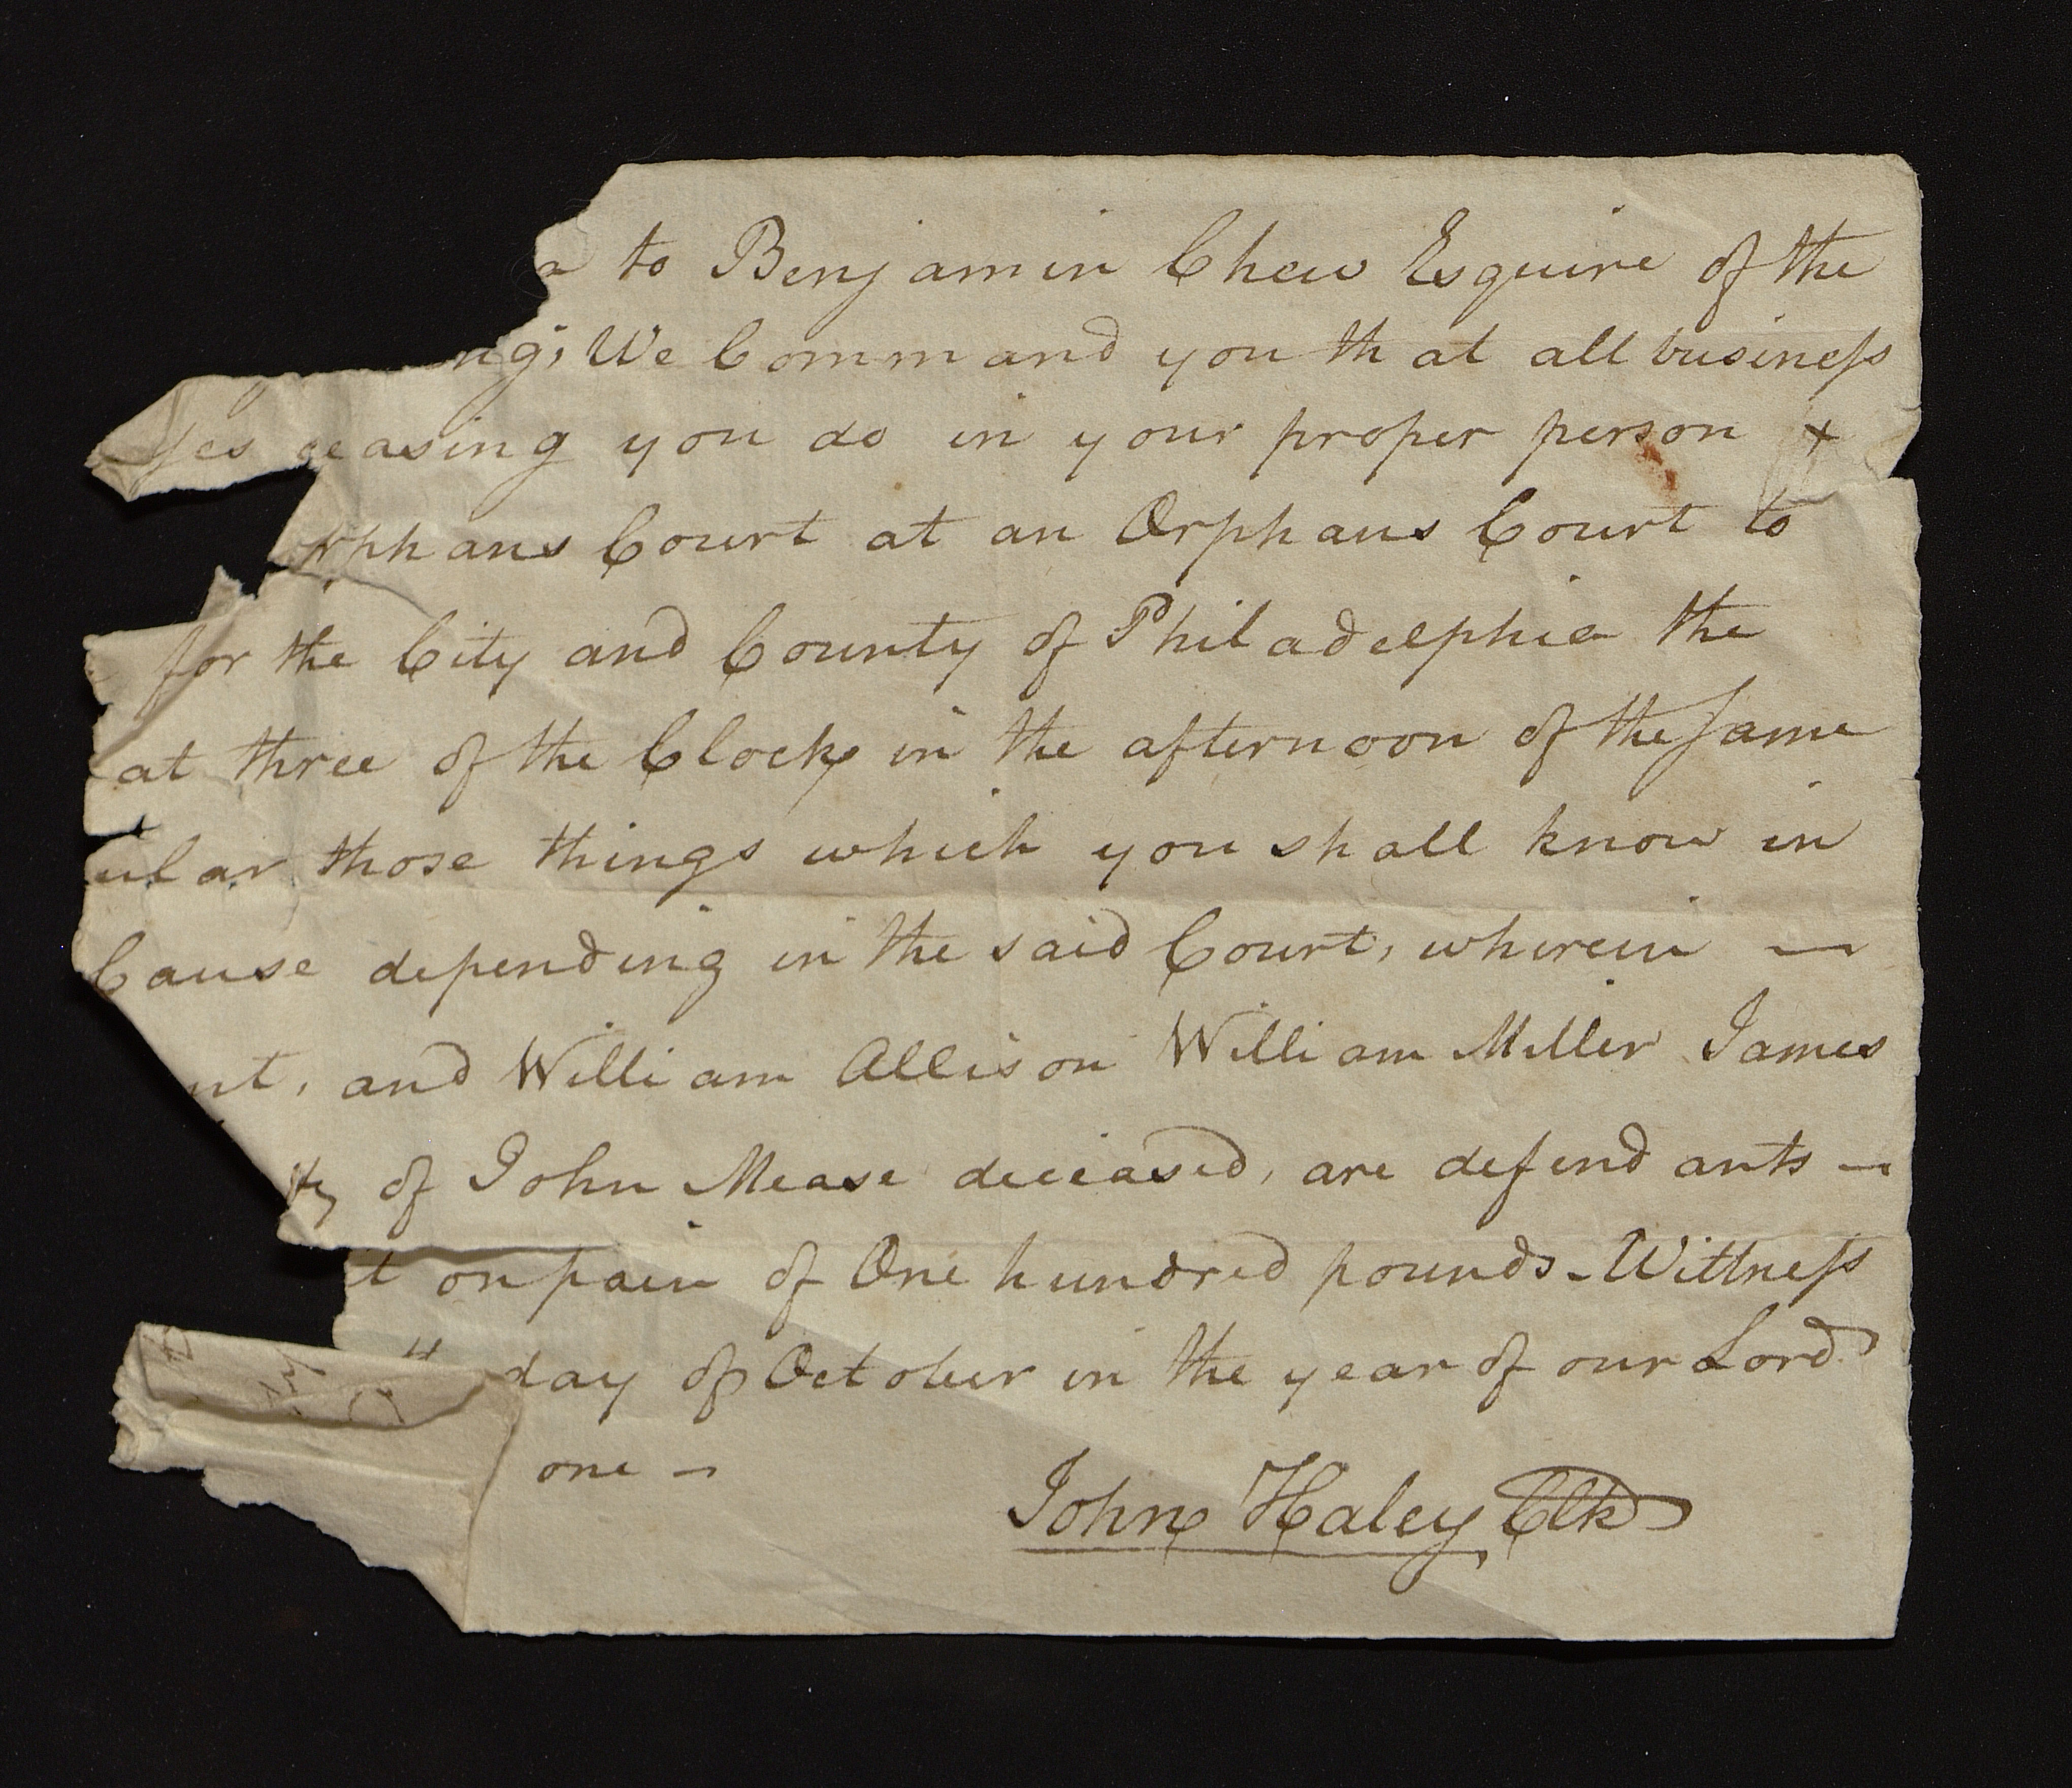 to Benjamin Chew Esquire of the
ng, We Command you that all business
ceasing you do in your proper person +
rphans Court at an Orphans Court to
for the City and County of Philadelphia the
at three of the Clock in the afternoon of the same
ular those things which you shall know in
Cause depending in the said Court, wherein —
nt, and William Allison William Miller James
of John Mease deceased, are defendants —
t on pain of One hundred pounds - Wittness
day of October in the year of our Lord
one —
John Haley Clk